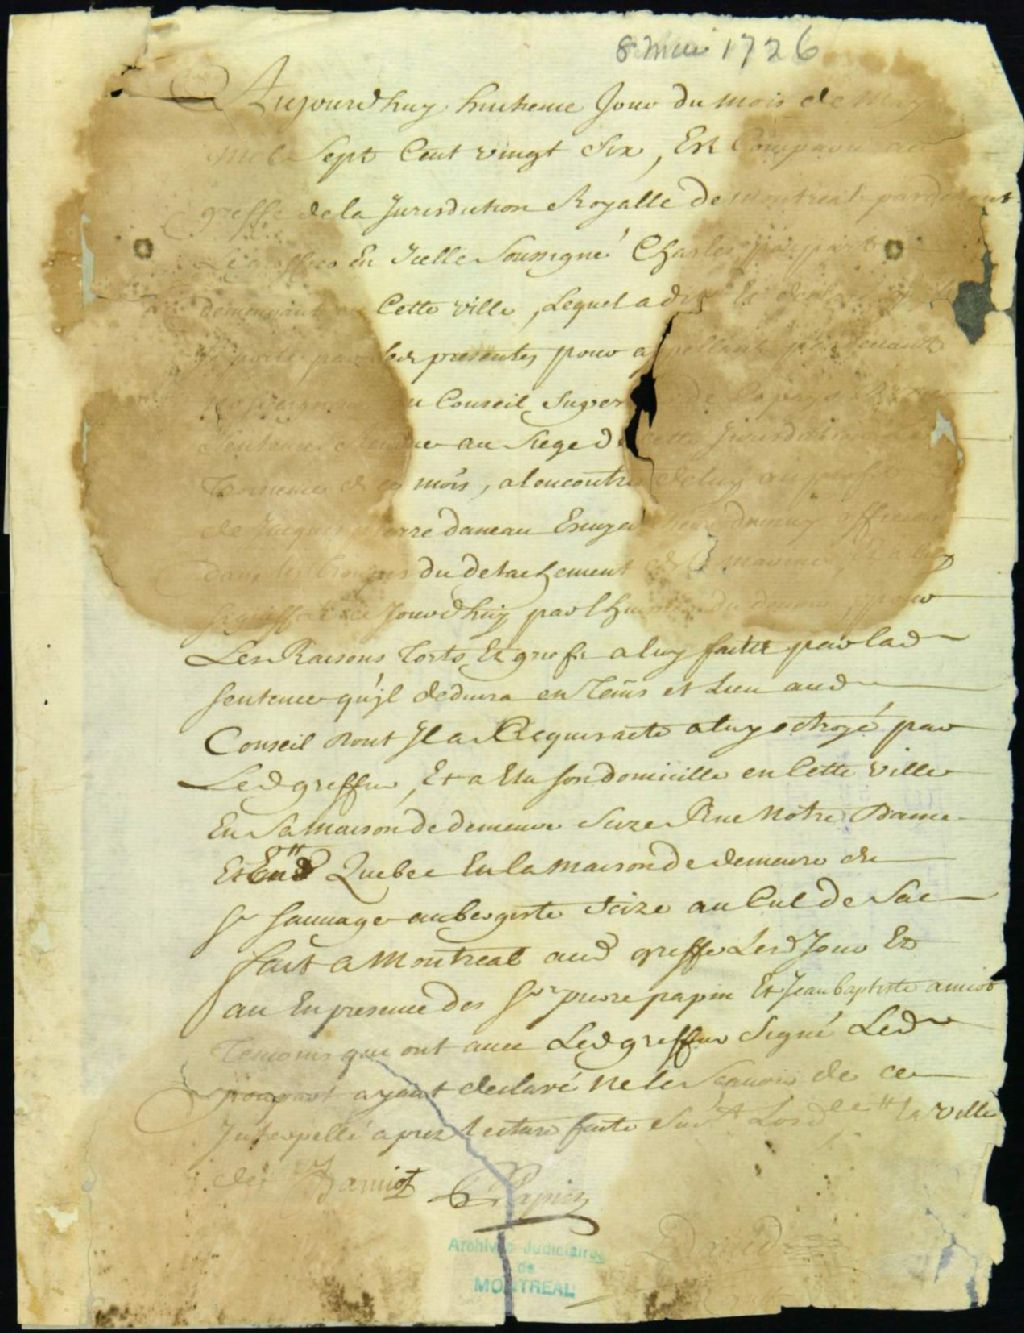 8 mai 1726
Aujourdhuy huitieme Jour du mois de May
mil Sept Cent vingt Six, Est Comparu au
greffe de la Jurisdiction Royalle de Montreal pardevant
Le greffier En Icelle Soussigné Charles
demeurant en Cette ville, Lequel a dit Et declaré
porte par les presentes pour appellant
u Conseil Super de Ce pays
Sentence rendue au Siege de Cette Jurisdiction
Troisieme de ce mois, a lencontre de luy au profit
de Jacques pierre daneau Ecuyer Sieur demuy officier
dans les troupes du detachement de la marine
Signiffiée ce Jourdhuy par
Les Raisons Torts Et griefs a luy faits par lad
Sentence qu'jl deduira en Tems et Lieu aud
Conseil dont Jl a Requis acte a luy octroyé par
Led greffier, Et a Elu son domicille en Cette ville
En Sa Maison de demeure Size Rue Notre Dame
Et En Quebec En la maison de demeure du
Sr Sauvage aubergiste Scize au Cul de Sac
fait a Montreal aud greffe Lesd Jour Et
an En presence des Srs pierre papin Et Jean baptiste amiot
Temoins qui ont avec Led greffier Signé Led
ayant declaré ne le Scavoir de ce
Interpellé apres lecture faite la ville
JBamiot PPapin
David
Archives Judiciaires
de
MONTREAL